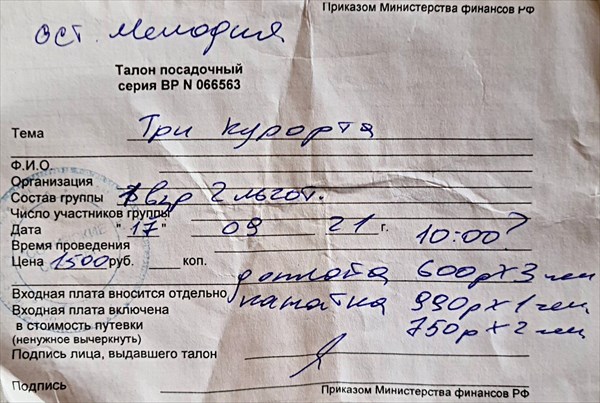 Приказом Министерства финансов РФ
ост. Мелодия
Талон посадочный
серия ВР N 066563
Тема Три курорта
Ф.И.О.
Организация
Состав группы 1 взр 2 льгот.
Число участников группы
Дата "17" 09 21 г. 10:00?
Время проведения
Цена 1500 руб. коп.
доплата 600р х 3 чел
Входная плата вносится отдельно канатка 990р х 1 чел
Входная плата включена 750р х 2 чел
в стоимость путевки
(ненужное вычеркнуть)
Подпись лица, выдавшего талон
Подпись
Приказом Министерства финансов РФ